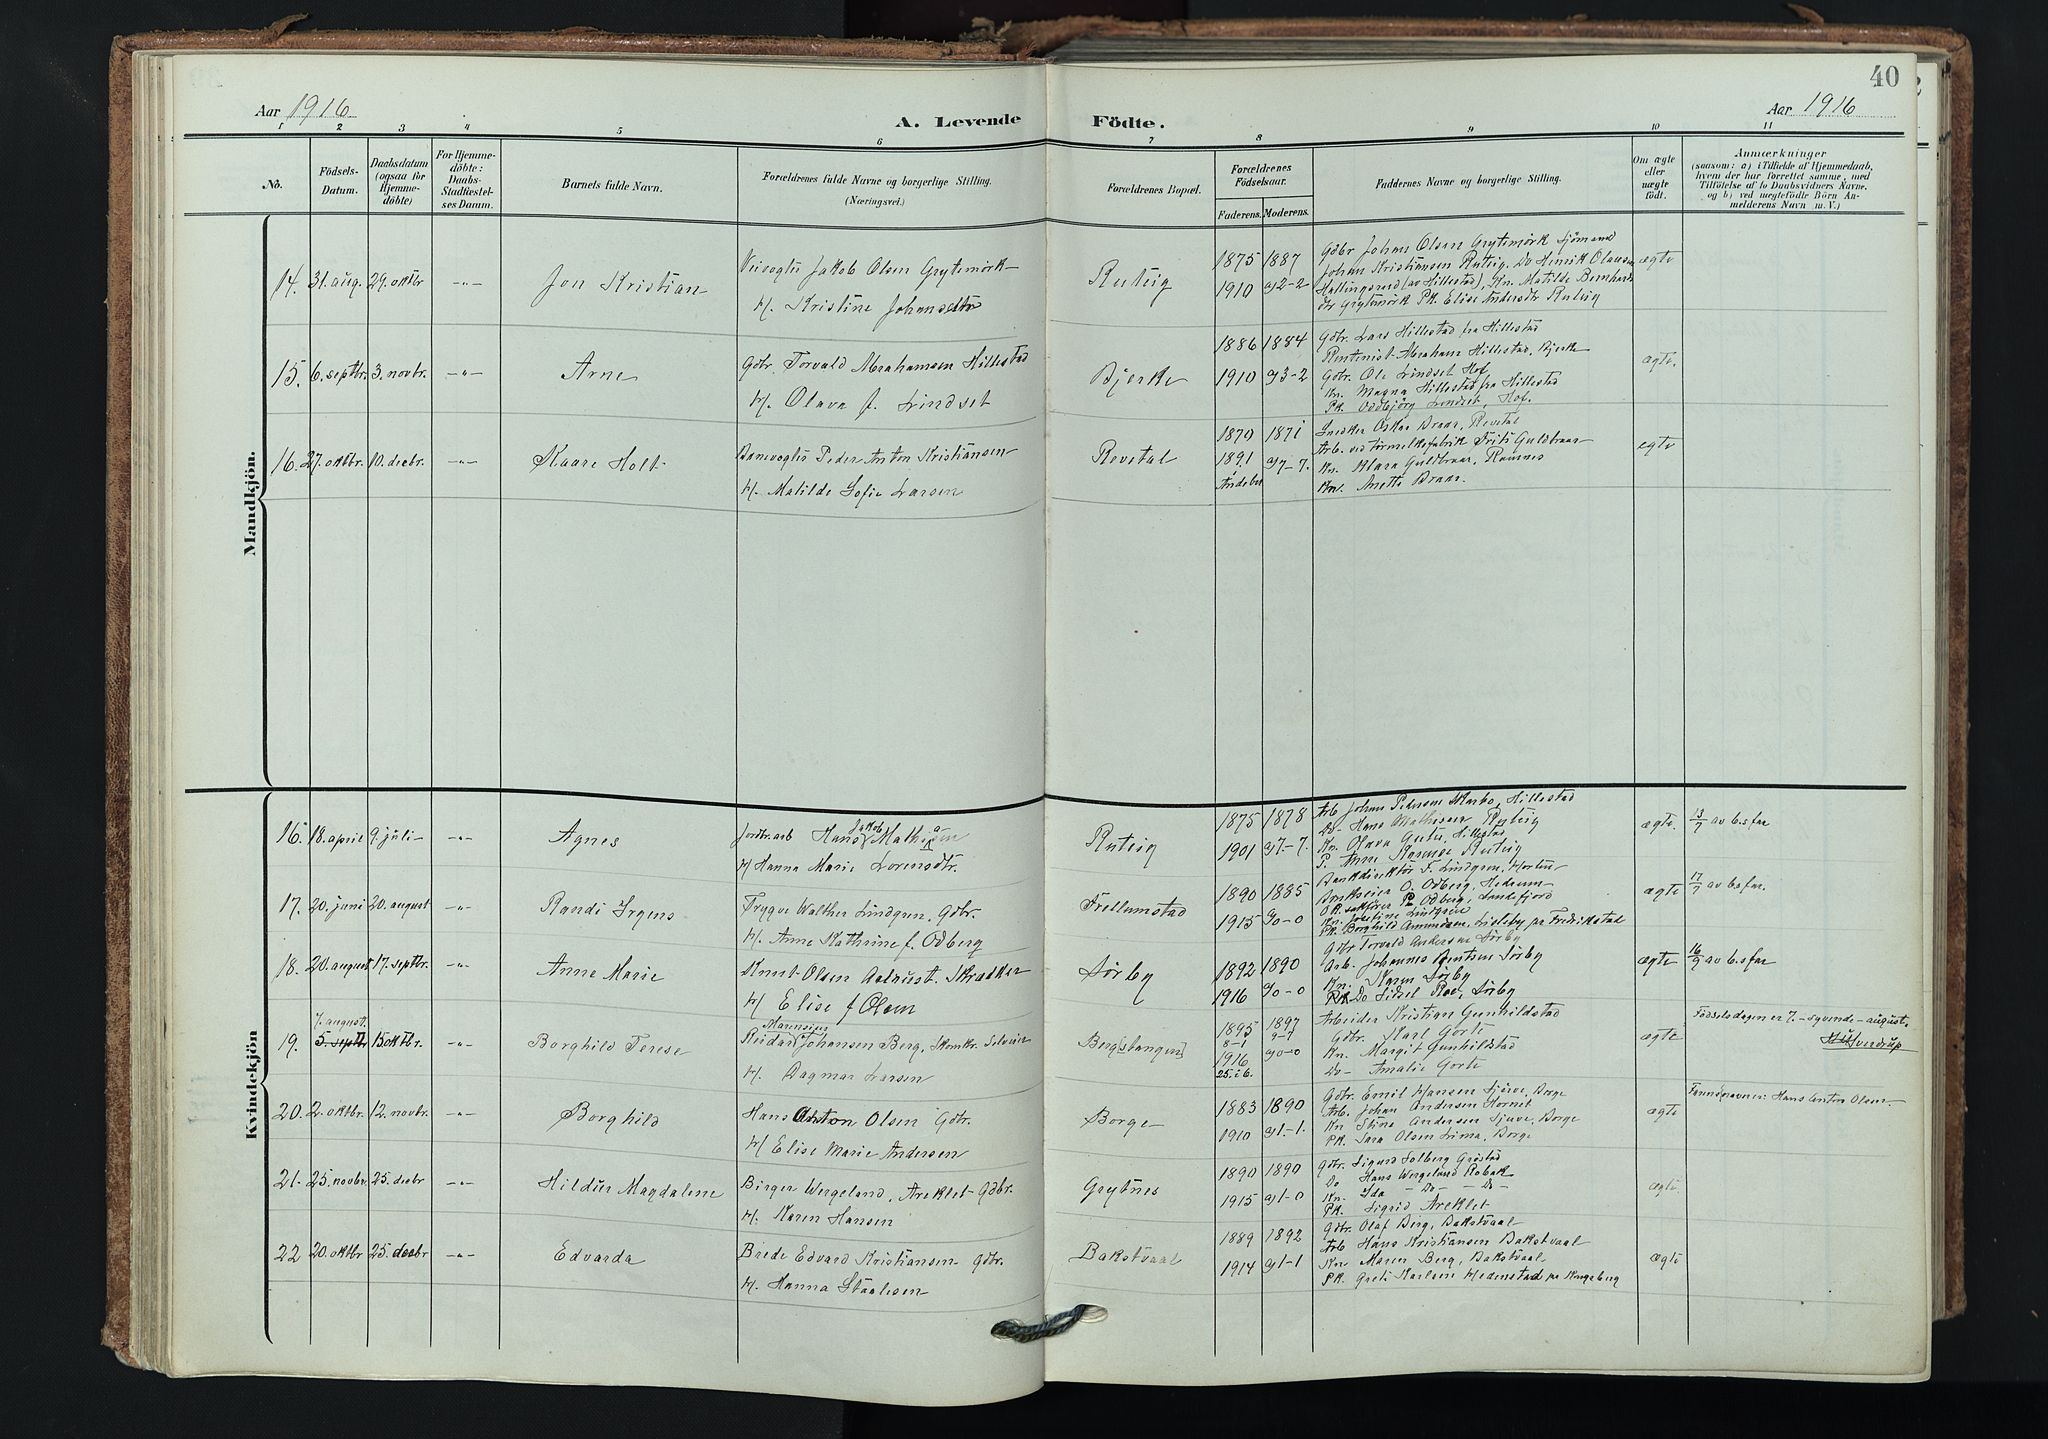 40
Aar 1916
A. Levende Födte.
Aar 1916
1 2 3 4 5 6 7 8 9 10 11
No.
Födsels-Datum.
Daabsdatum (ogsaa for Hjemme-döbte)
For Hjemme-döbte: Daabs-Stadfæstel-ses Datum.
Barnets fulde Navn.
Forældrenes fulde Navne og borgerlige Stilling.
(Næringsvei.)
Forældrenes Bopæl.
Forældrenes Födselsaar.
Faderens. Moderens.
Faddernes Navne og borgerlige Stilling.
Om ægte eller uægte födt.
Anmærkninger
(saasom: a) i Tilfælde af Hjemmedaab,
hvem der har forrettet samme, med
Tilföielse af to Daabsvidners Navne.
og b) ved uægtefödte Börn An-
melderens Navn m. V.)
Mandkjön.
14. 31. aug. 29. oktbr -"- Jon Kristian
Veivogter Jakob Olsen Grytemørk
H. Kristine Johansdtr
Ruteig
1875 1887
1910 g2-2
Gdbr Johan Olsen Grytemörk Sjömand
Johan Kristiansen Ruteig. Do Henrik Olausen
Hallingsrud (av Hillestad), Kn. Matilde Bernhards
dtr Grytemörk PK. Elise Andersdtr Ruteig
ægte
15. 6. septbr. 3. novbr. -"- Arne
Gdbr. Torvald Abrahamsen Hillestad
H. Olava f. Lindset
Bjerke
1886 1884
1910 g3-2
Gdbr. Lars Hillestad fra Hillestad
Rentenist Abraham Hillestad, Bjerke
Gdbr. Ole Lindset Hof,
Kn. Magna Hillestad fra Hillestad
PK. Oddbjörg Lindset, Hof.
ægte.
16. 27. oktbr. 10. decbr. -"- Kaare Holt
Banevogter Peder Anton Kristiansen
H. Matilde Sofie Larsen
Revetal
1870 1871
1891 g7-7.
Andebu
Snedker Oskar Braar, Revetal
Arb. ved törmelkefabrik Frits Guldbraar
Kn. Klara Guldbraar, Ramnes
Kn. Anette Braar.
egte
Kvindekjön
16. 18. april 9. juli -"- Agnes
Jordbr. arb Hans Jakob Mathiasen
H Hanna Marie Lorensdtr.
Ruteig
1875 1878
1901 g7-7.
Arb. Johan Pedersen Hillestad
Do- Hans Mathisen Ruteig
Kn. Olava Hillestad
P. Anne Ruteig
ægte. 13/7 av b.s.far
17. 20. juni 20. august -"- Randi Irgens
Trygve Walther Lindgren. Gdbr.
H. Anne Kathrine f. Odberg
Frellumstad
1890 1885
1915 g0-0
Bankdirektör F. Lindgren, Horten
Brukseier O. Odberg, Hedrum
O.R. sakförer P. Odberg, Sandefjord
Kn. Josefine Lindgren
PK. Borghild Amundsen, Lisleby pr Fredrikstad
ægte 17/7 av b.s. far.
18. 20. august 17. septbr. -"- Anne Marie
Knut Olsen Aalrust. Skrædker
H Elise f Olsen
Sörby
1892 1890
1916 g0-0
Gdbr Torvald Andersen Sörby
Arb. Johannes Sörby
Kn. Karen Sörby
PK Do Sissel Roe, Sörby
ægte 16/9 av b.s far
7. august.
19. 5. septbr 15 oktbr. -"- Borghild Terese
Reidar Marensius Johansen Berg, Skomkr. Selveier
H. Dagmar Larsen
Berg [stangen]
1895 1897
8-1 9-7
1916 g0-0
25.i 6.
Arbeider Kristian Gunhildstad
Gdbr. Karl Gorte
Kn. Margit Gunhildstad
Do- Amalie Gorte
ægte
Födselsdagen er 7. - syvende - august.
Sverdrup
20. 2. oktbr. 12. novbr. -"- Borghild
Hans Anton Olsen Gdbr.
H Elise Marie Andersen
Borge
1883 1890
1910 g1-1.
Gdbr. Emil Hansen Sjueve, Borge
Arb. Johan Andersen Hornit
Kn Stine Andersen Sjueve, Borge
PK. Sara Olsen Lima, Borge
ægte
Fannsnavner: Hans Anton Olsen
21. 25. novbr. 25. decbr -"- Hildur Magdalene
Birger Wergeland, Areklet Gdbr.
H. Karen Hansen
Grytnes
1890 1890
1915 g1-0
Gdbr. Sigurd Solberg Gröstad
Do Hans Wergeland Robak
Kn. Ida - Do - - Do -
PK. Sigrid Areklet
ægte
22 20. oktbr 25. decbr -"- Edvarda
Brede Edvard Kristiansen Gdbr.
H. Hanna Staalesen
Bakstvaal
1889 1892
1914 g1-1
Gdbr. Olaf Berg, Bakstvaal
Arb Hans Kristiansen Bakstvaal
Kn Maren Berg, Bakstvaal.
PK. Grete Karlsen Hedenstad pr Kongsberg
ægte